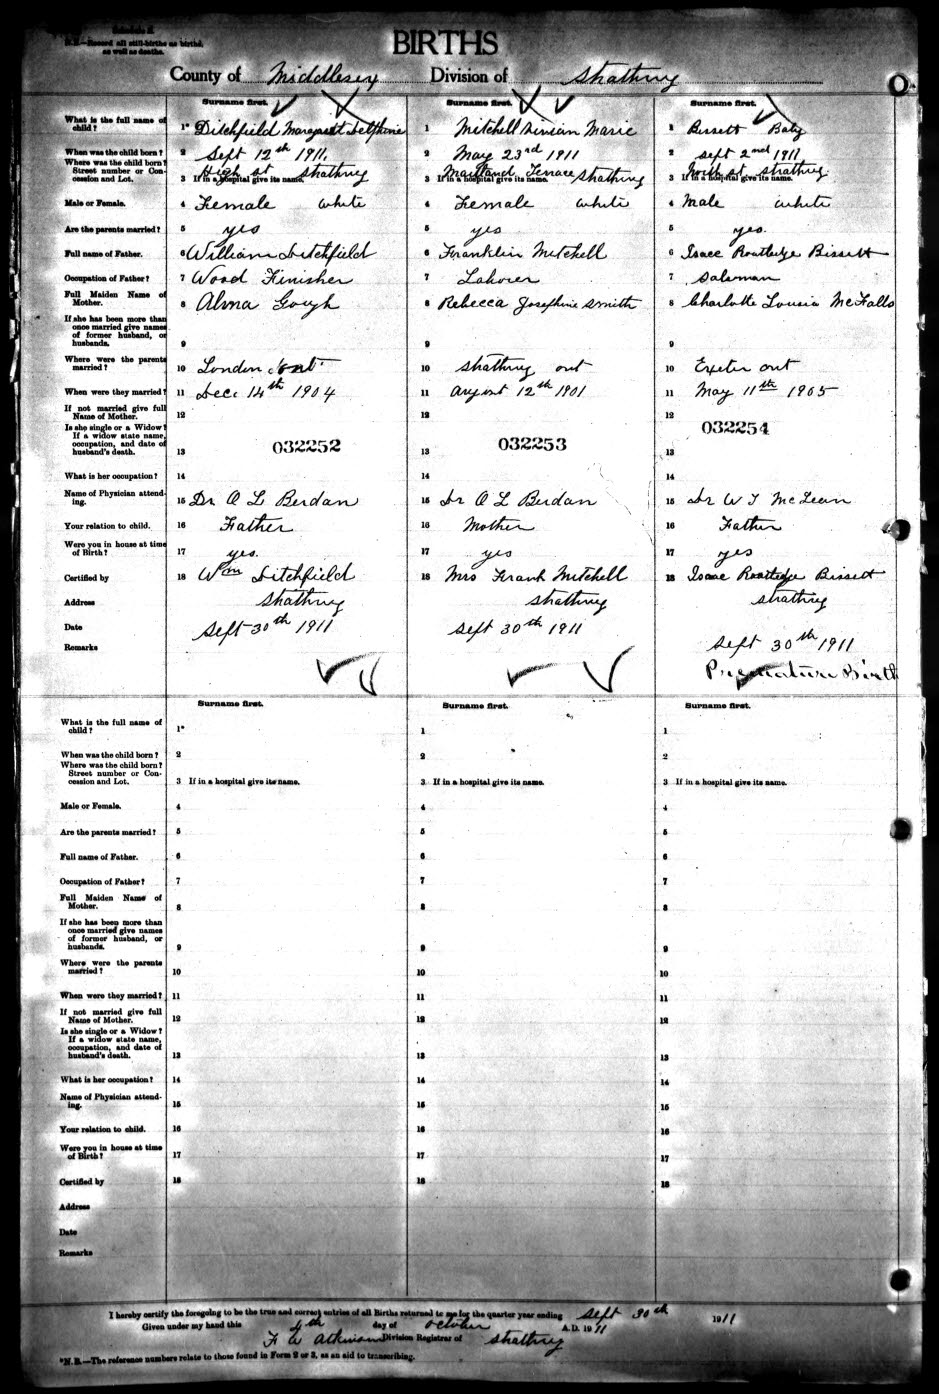 Schedule B
N.B.—Record all still-births as births,
as well as deaths.
BIRTHS
County of Middlesex Division of Strathroy
Surname first. Surname first. Surname first.
What is the full name of
child? 1* Ditchfield Margaret Delphine 1 Mitchell Vivian Marie 1 Bissett Baby
When was the child born? 2 Sept 12th 1911. 2 May 23rd 1911 2 Sept 2nd 1911
Where was the child born? High st Strathroy Maitland Terrace Strathroy North st Strathroy
Street number or Con-
cession and Lot. 3 If in a hospital give its name. 3 If in a hospital give its name. 3 If in a hospital give its name.
Male or Female. 4 Female white 4 Female white 4 Male white
Are the parents married? 5 yes 5 yes 5 yes.
Full name of Father. 6 William Ditchfield 6 Franklin Mitchell 6 Isaac Routledge Bissett
Occupation of Father? 7 Wood Finisher 7 Laborer 7 Salesman
Full Maiden Name of
Mother. 8 Alma Gough 8 Rebecca Josephine Smith 8 Charlotte Lousia McFalls
If she has been more than
once married give names
of former husband, or
husbands. 9 9 9
Where were the parents
married? 10 London Ont 10 Strathroy ont 10 Exeter ont
When were they married? 11 Dec. 14th 1904 11 August 12th 1901 11 May 11th 1905
If not married give full
Name of Mother. 12 12 12
Is she single or a Widow?
If a widow state name,
occupation, and date of
husband's death. 13 032252 13 032253 13 032254
What is her occupation? 14 14 14
Name of Physician attend-
ing. 15 Dr A L Berdan 15 Dr A L Berdan 15 Dr W J McLean
Your relation to child. 16 Father 16 Mother 16 Father
Were you in house at time
of Birth? 17 yes. 17 yes 17 yes
Certified by 18 Wm Ditchfield 18 Mrs Frank Mitchell 18 Isaac Routledge Bissett
Address Strathroy Strathroy Strathroy
Date Sept 30th 1911 Sept 30th 1911 Sept 30th 1911
Remarks Premature Birth
Surname first. Surname first. Surname first.
What is the full name of
child? 1* 1 1
When was the child born? 2 2 2
Where was the child born?
Street number or Con-
cession and Lot. 3 If in a hospital give its name. 3 If in a hospital give its name. 3 If in a hospital give its name.
Male or Female. 4 4 4
Are the parents married? 5 5 5
Full name of Father. 6 6 6
Occupation of Father? 7 7 7
Full Maiden Name of
Mother. 8 8 8
If she has been more than
once married give names
of former husband, or
husbands. 9 9 9
Where were the parents
married? 10 10 10
When were they married? 11 11 11
If not married give full
Name of Mother. 12 12 12
Is she single or a Widow?
If a widow state name,
occupation, and date of
husband's death. 13 13 13
What is her occupation? 14 14 14
Name of Physician attend-
ing. 15 15 15
Your relation to child. 16 16 16
Were you in house at time
of Birth? 17 17 17
Certified by 18 18 18
Address
Date
Remarks
I hereby certify the foregoing to be the true and correct entries of all Births returned to me for the quarter year ending Sept 30th 1911
Given under my hand this 4th day of October A.D. 1911
F W Atkinson Division Registrar of Strathroy
*N.B.—The reference numbers relate to those found in Form 2 or 3, as an aid to transcribing.